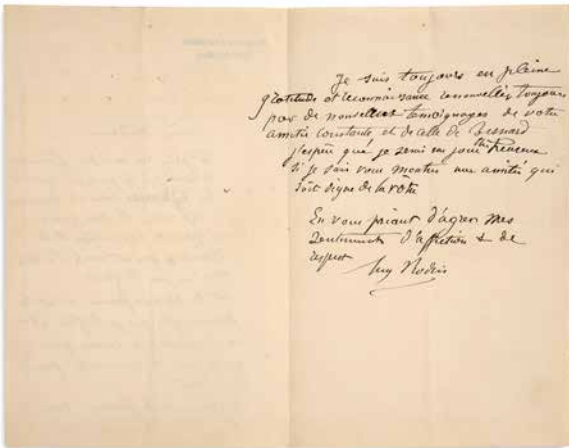 Je suis toujours en pleine
gratitude et reconnaissance renouvellée toujours
par de nouvelles temoignages de votre
amitie constante et de celle de Besnard
j'espère que je serai un jour très heureux
si je puis vous montrer une amitié qui
soit digne de la votre
En vous priant d'agreer mes
sentiments d'affection & de
respect
Aug Rodin